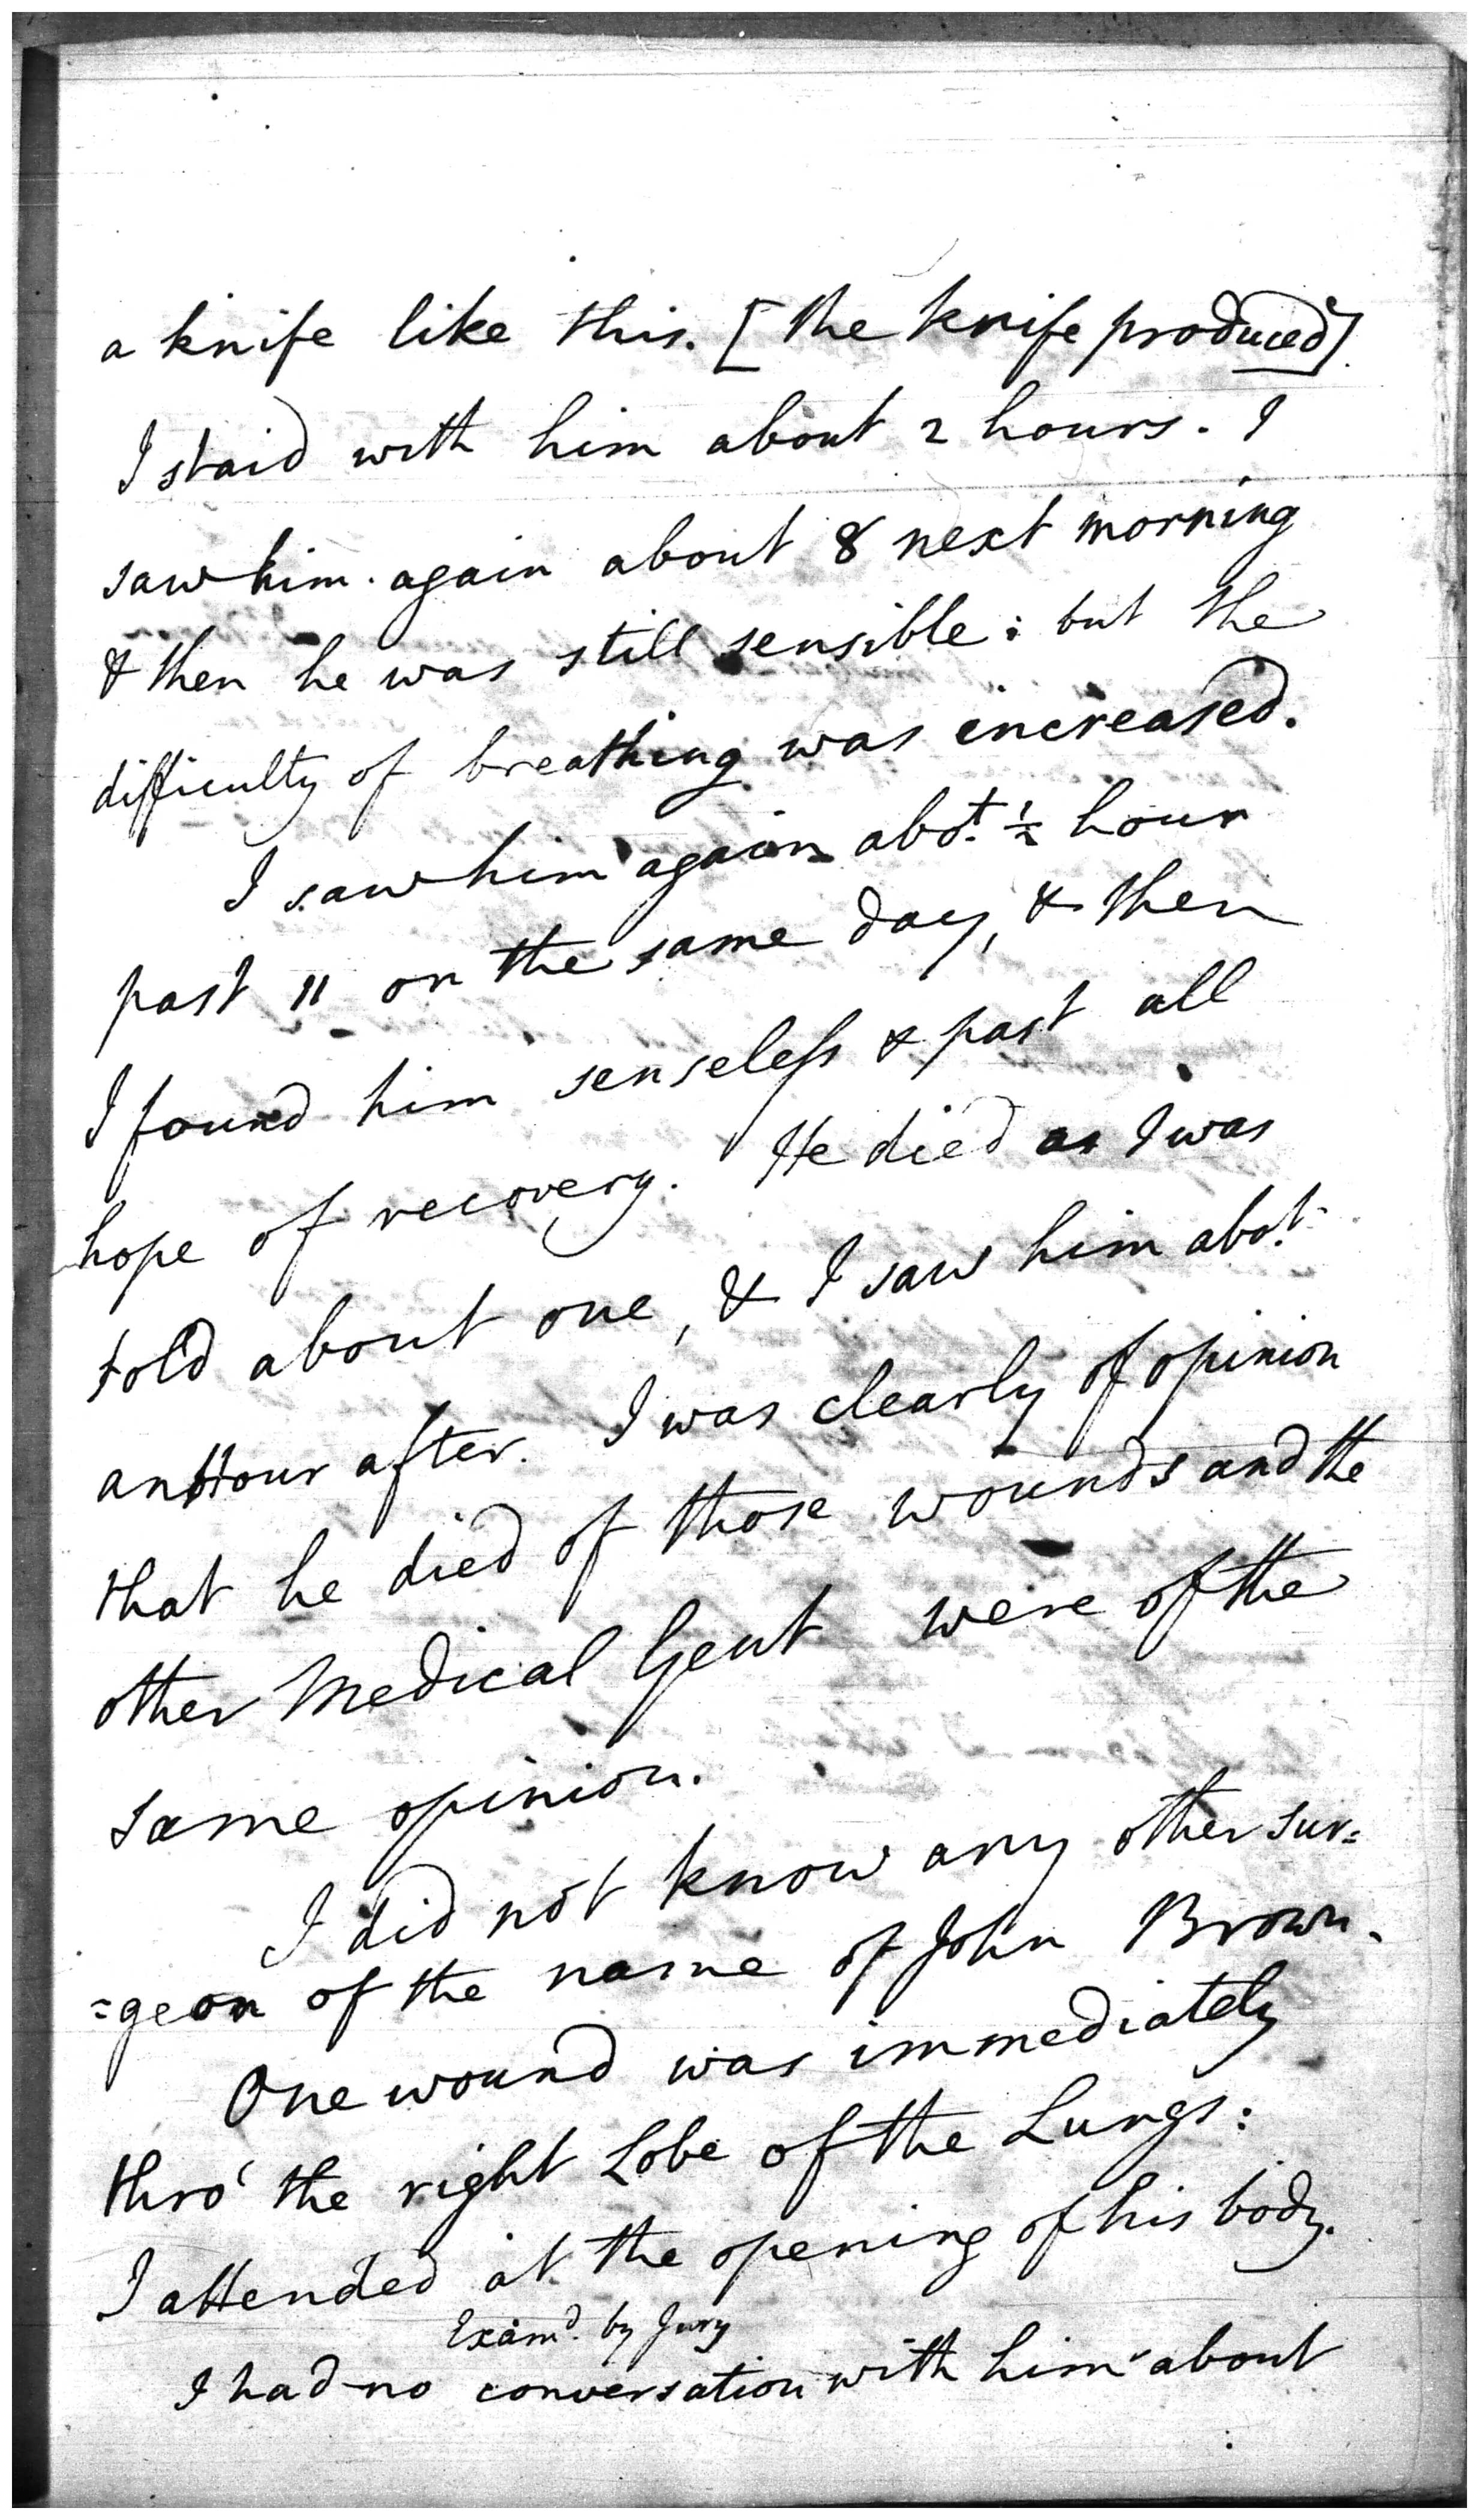 a knife like this. [the knife produced]
I staid with him about 2 hours. I
saw him again about 8 next morning
& then he was still sensible: but the
difficulty of breathing was increased.
I saw him again abot. ½ hour
past 11 on the same day, & then
I found him senseless & past all
hope of recovery. He died as I was
told about one, & I saw him abot.
an Hour after. I was clearly of opinion
that he died of those wounds and the
other Medical Gent were of the
same opinion.
I did not know any other sur=
=geon of the name of John Brown.
One wound was immediately
thro' the right Lobe of the Lungs:
I attended at the opening of his body.
Examd. by Jury
I had no conversation with him about